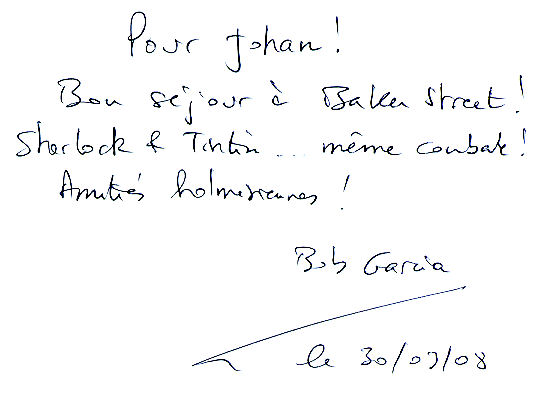 Pour Johan !
Bon séjour à Baker Street !
Sherlock & Tintin ... même combat !
Amitiés holmésiennes !
Bob Garcia
le 30/09/08